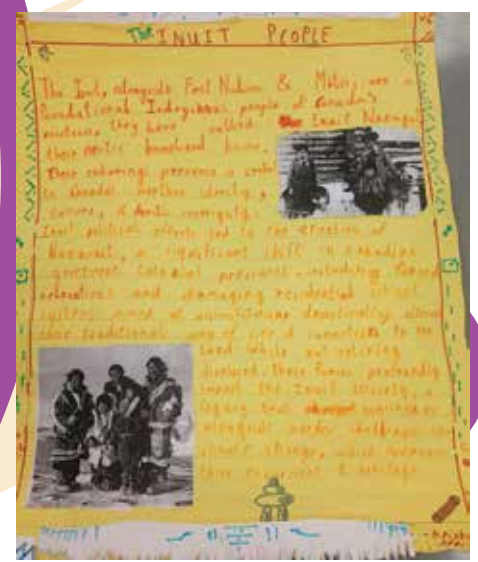 The INUIT PEOPLE
The Inuit, alongside First Nations & Métis, are a
foundational Indigenous people of Canada's
existence, they have called the Inuit Nunangat
their Arctic homeland home.
Their enduring presence is
to Canada's northern identity,
culture, & Arctic sovereignty.
Inuit political efforts led to the creation of
Nunavut, a significant shift in Canadian
government. Colonial pressures, including forced
relocations and damaging residential school
system aimed at assimilation drastically altered
their traditional way of life & connection to the
land. While not entirely
displaced, these forces profoundly
impact the Inuit society, a
legacy that
alongside modern challenges
climate change, which
their environment & heritage.